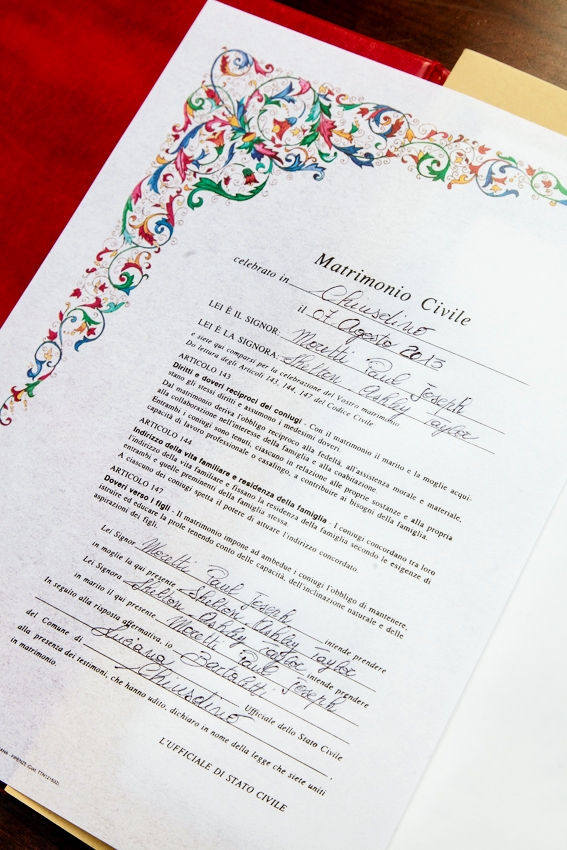 Matrimonio Civile
celebrato in Chiusdino
il 07 Agosto 2013
LEI È IL SIGNOR: Moretti Paul Joseph
LEI È LA SIGNORA: Shelton Ashley Taylor
e siete qui comparsi per la celebrazione del Vostro matrimonio
Do lettura degli Articoli 143, 144, 147 del Codice Civile.
ARTICOLO 143
Diritti e doveri reciproci dei coniugi - Con il matrimonio il marito e la moglie acqui-
stano gli stessi diritti e assumono i medesimi doveri.
Dal matrimonio deriva l'obbligo reciproco alla fedeltà, all'assistenza morale e materiale,
alla collaborazione nell'interesse della famiglia e alla coabitazione.
Entrambi i coniugi sono tenuti, ciascuno in relazione alle proprie sostanze e alla propria
capacità di lavoro professionale o casalingo, a contribuire ai bisogni della famiglia.
ARTICOLO 144
Indirizzo della vita familiare e residenza della famiglia - I coniugi concordano tra loro
l'indirizzo della vita familiare e fissano la residenza della famiglia secondo le esigenze di
entrambi e quelle preminenti della famiglia stessa.
A ciascuno dei coniugi spetta il potere di attuare l'indirizzo concordato.
ARTICOLO 147
Doveri verso i figli - Il matrimonio impone ad ambedue i coniugi l'obbligo di mantenere,
istruire ed educare la prole tenendo conto delle capacità, dell'inclinazione naturale e delle
aspirazioni dei figli.
Lei Signor Moretti Paul Joseph intende prendere
in moglie la qui presente Shelton Ashley Taylor
Lei Signora Shelton Ashley Taylor intende prendere
in marito il qui presente Moretti Paul Joseph
In seguito alla risposta affermativa, io Bartoletti
Luciana Ufficiale dello Stato Civile
del Comune di Chiusdino
alla presenza dei testimoni, che hanno udito, dichiaro in nome della legge che siete uniti
in matrimonio.
L'UFFICIALE DI STATO CIVILE